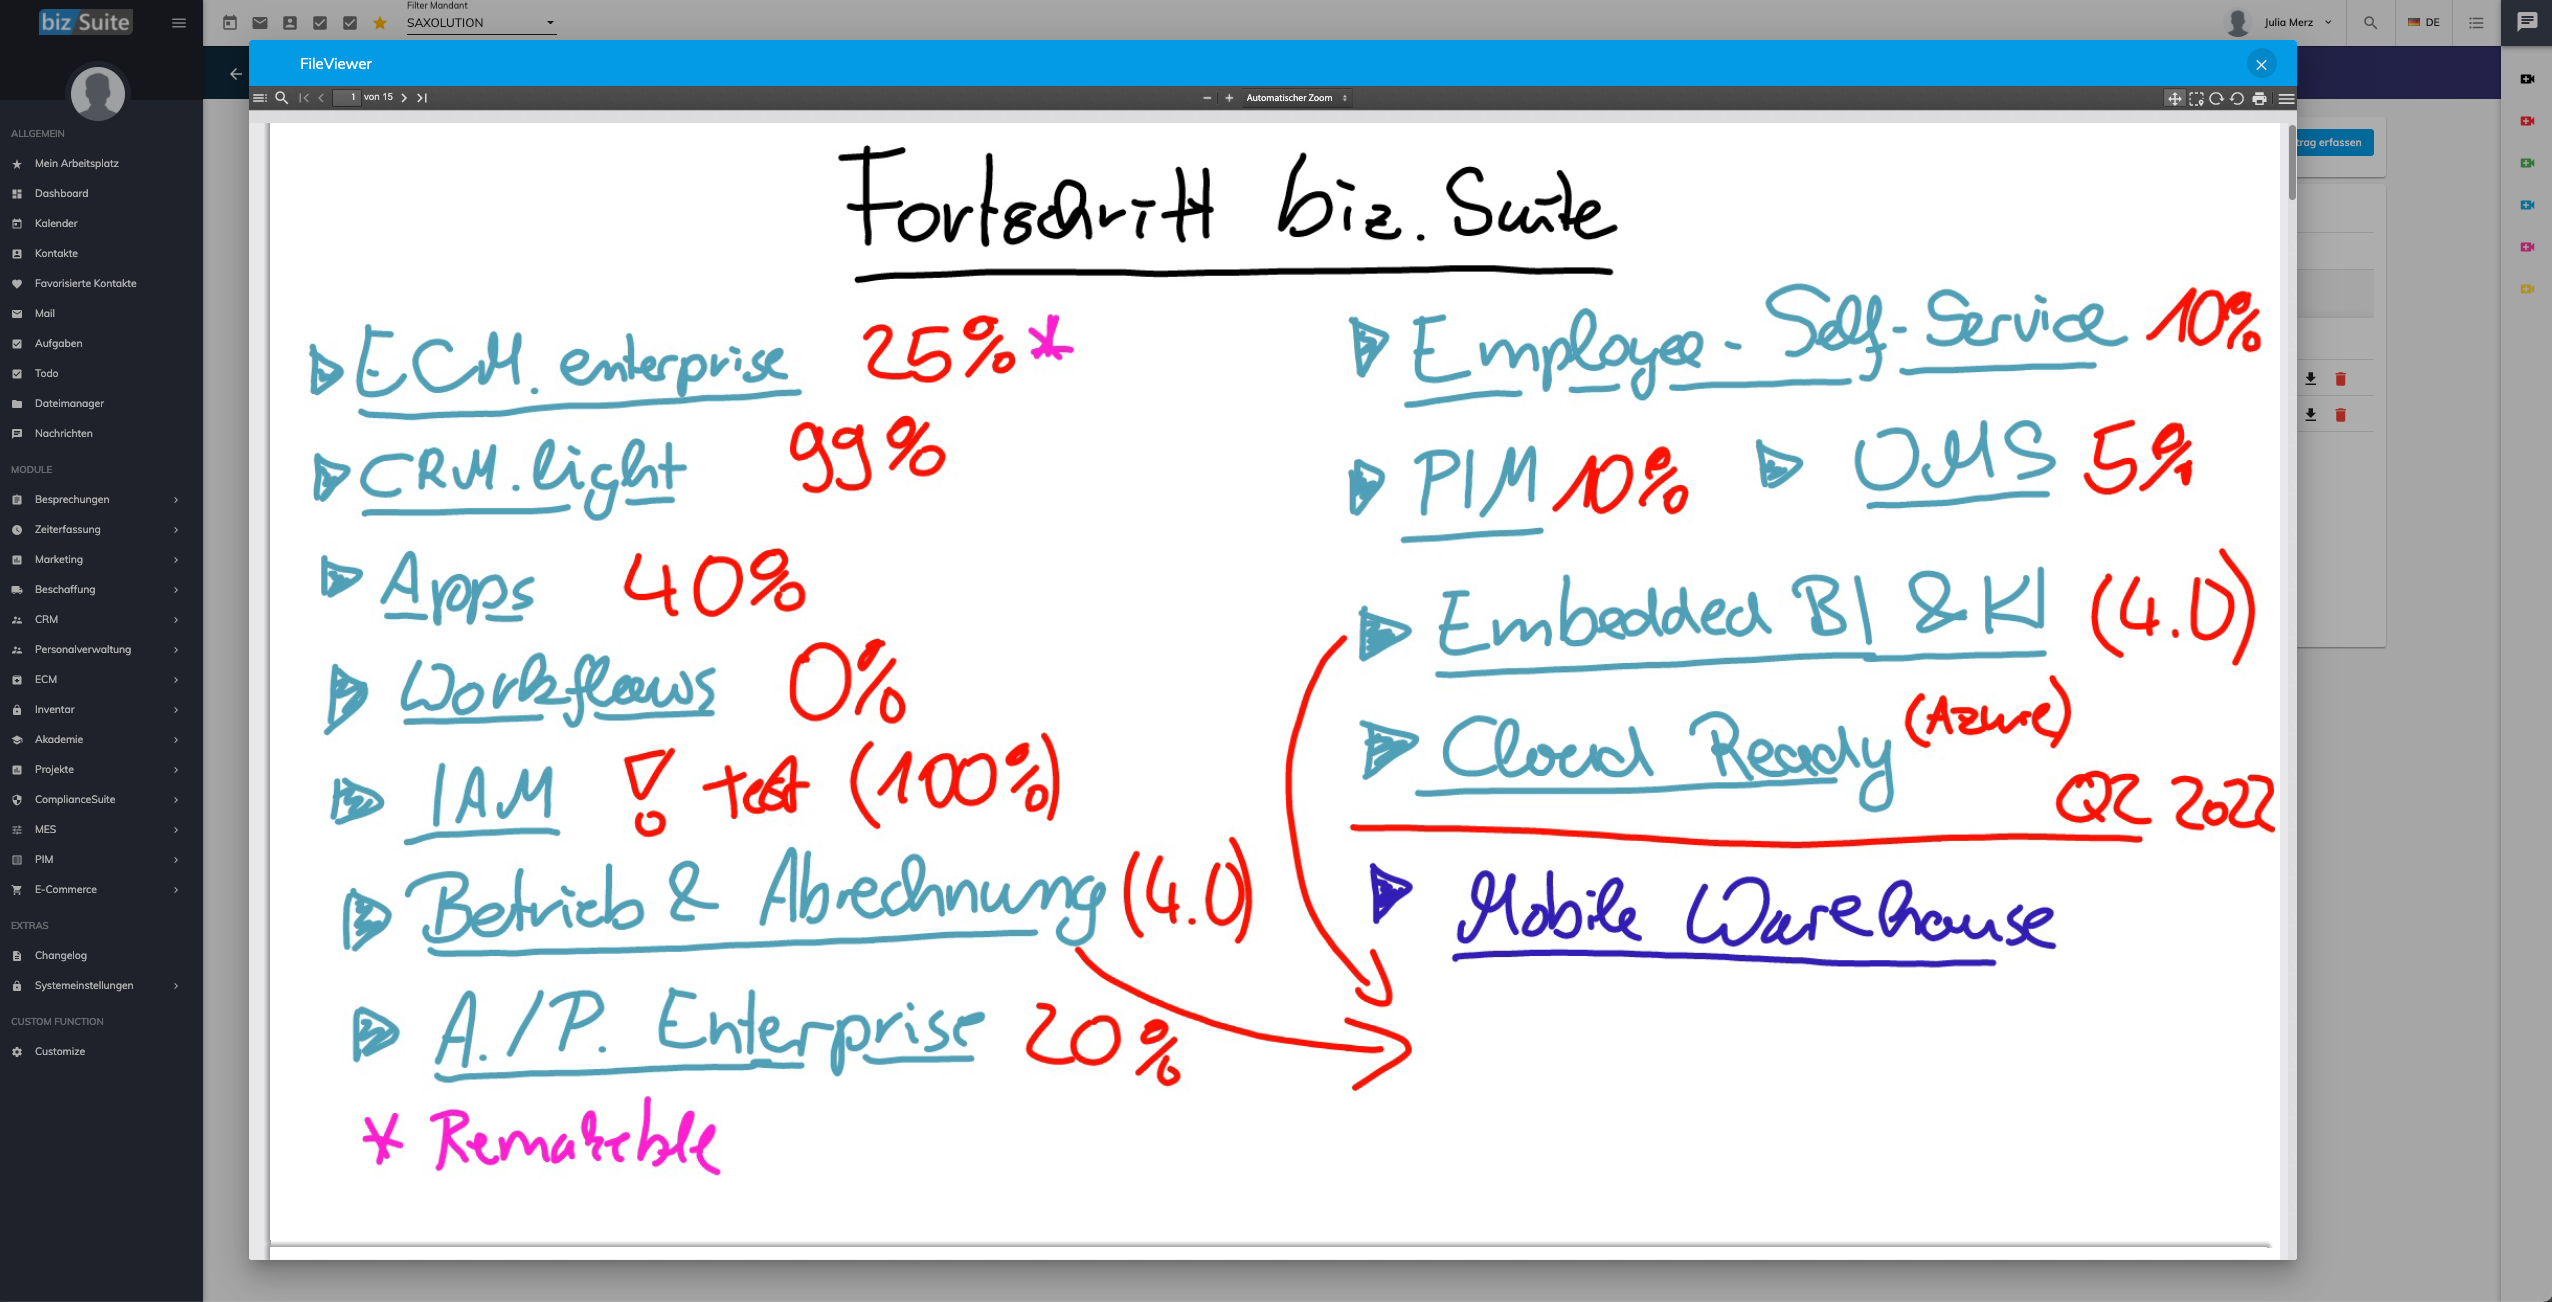 biz Suite
Filter Mandant
SAXOLUTION
Julia Merz
DE
FileViewer
1 von 15
Automatischer Zoom
trag erfassen
ALLGEMEIN
Mein Arbeitsplatz
Dashboard
Kalender
Kontakte
Favorisierte Kontakte
Mail
Aufgaben
Todo
Dateimanager
Nachrichten
MODULE
Besprechungen
Zeiterfassung
Marketing
Beschaffung
CRM
Personalverwaltung
ECM
Inventar
Akademie
Projekte
ComplianceSuite
MES
PIM
E-Commerce
EXTRAS
Changelog
Systemeinstellungen
CUSTOM FUNCTION
Customize
Fortschritt biz.Suite
ECM.enterprise 25%*
CRM.light 99%
Apps 40%
Workflows 0%
IAM ! test (100%)
Betrieb & Abrechnung (4.0)
A./P. Enterprise 20%
* Remarkble
Employee-Self-Service 10%
PIM 10% OMS 5%
Embedded BI & KI (4.0)
Cloud Ready (Azure)
Q2 2022
Mobile Warehouse